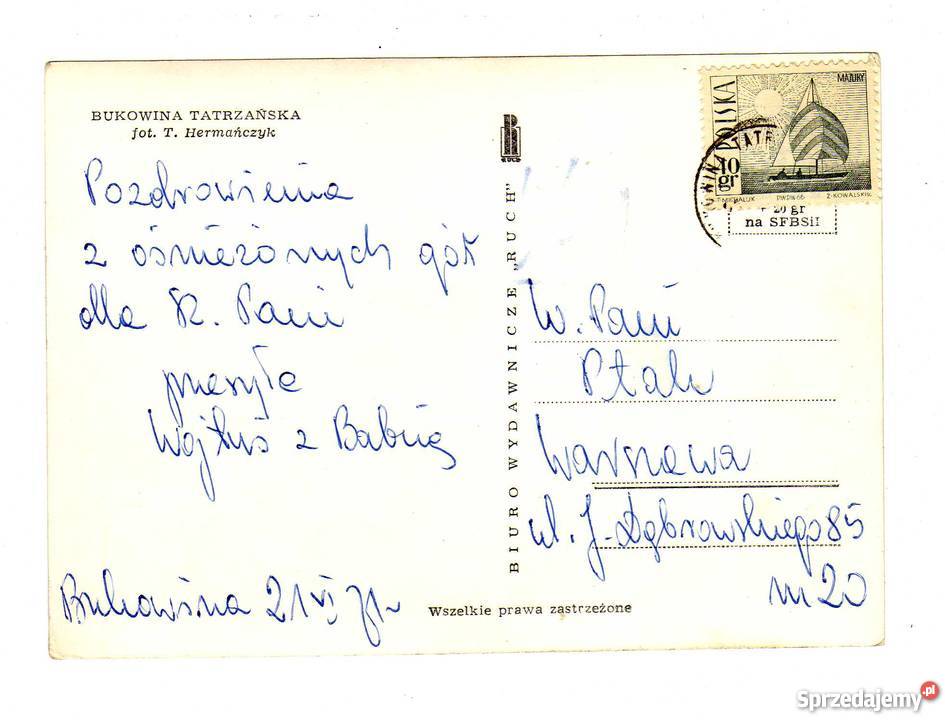 BUKOWINA TATRZAŃSKA
fot. T. Hermańczyk
Pozdrowienia
z ośnieżonych gór
dla Sz. Pani
przesyła
Wojtuś z Babcią
Bukowina 21 VI 71
R
RUCH
BIURO WYDAWNICZE „RUCH"
Wszelkie prawa zastrzeżone
POLSKA
MAZURY
10
gr
T. MICHALUK PWPW 66 Z. KOWALSKI
TATR
+ 20 gr
na SFBSiI
W. Pani
Ptak
Warszawa
ul. J. Dąbrowskiego 85
m 20
Sprzedajemy.pl